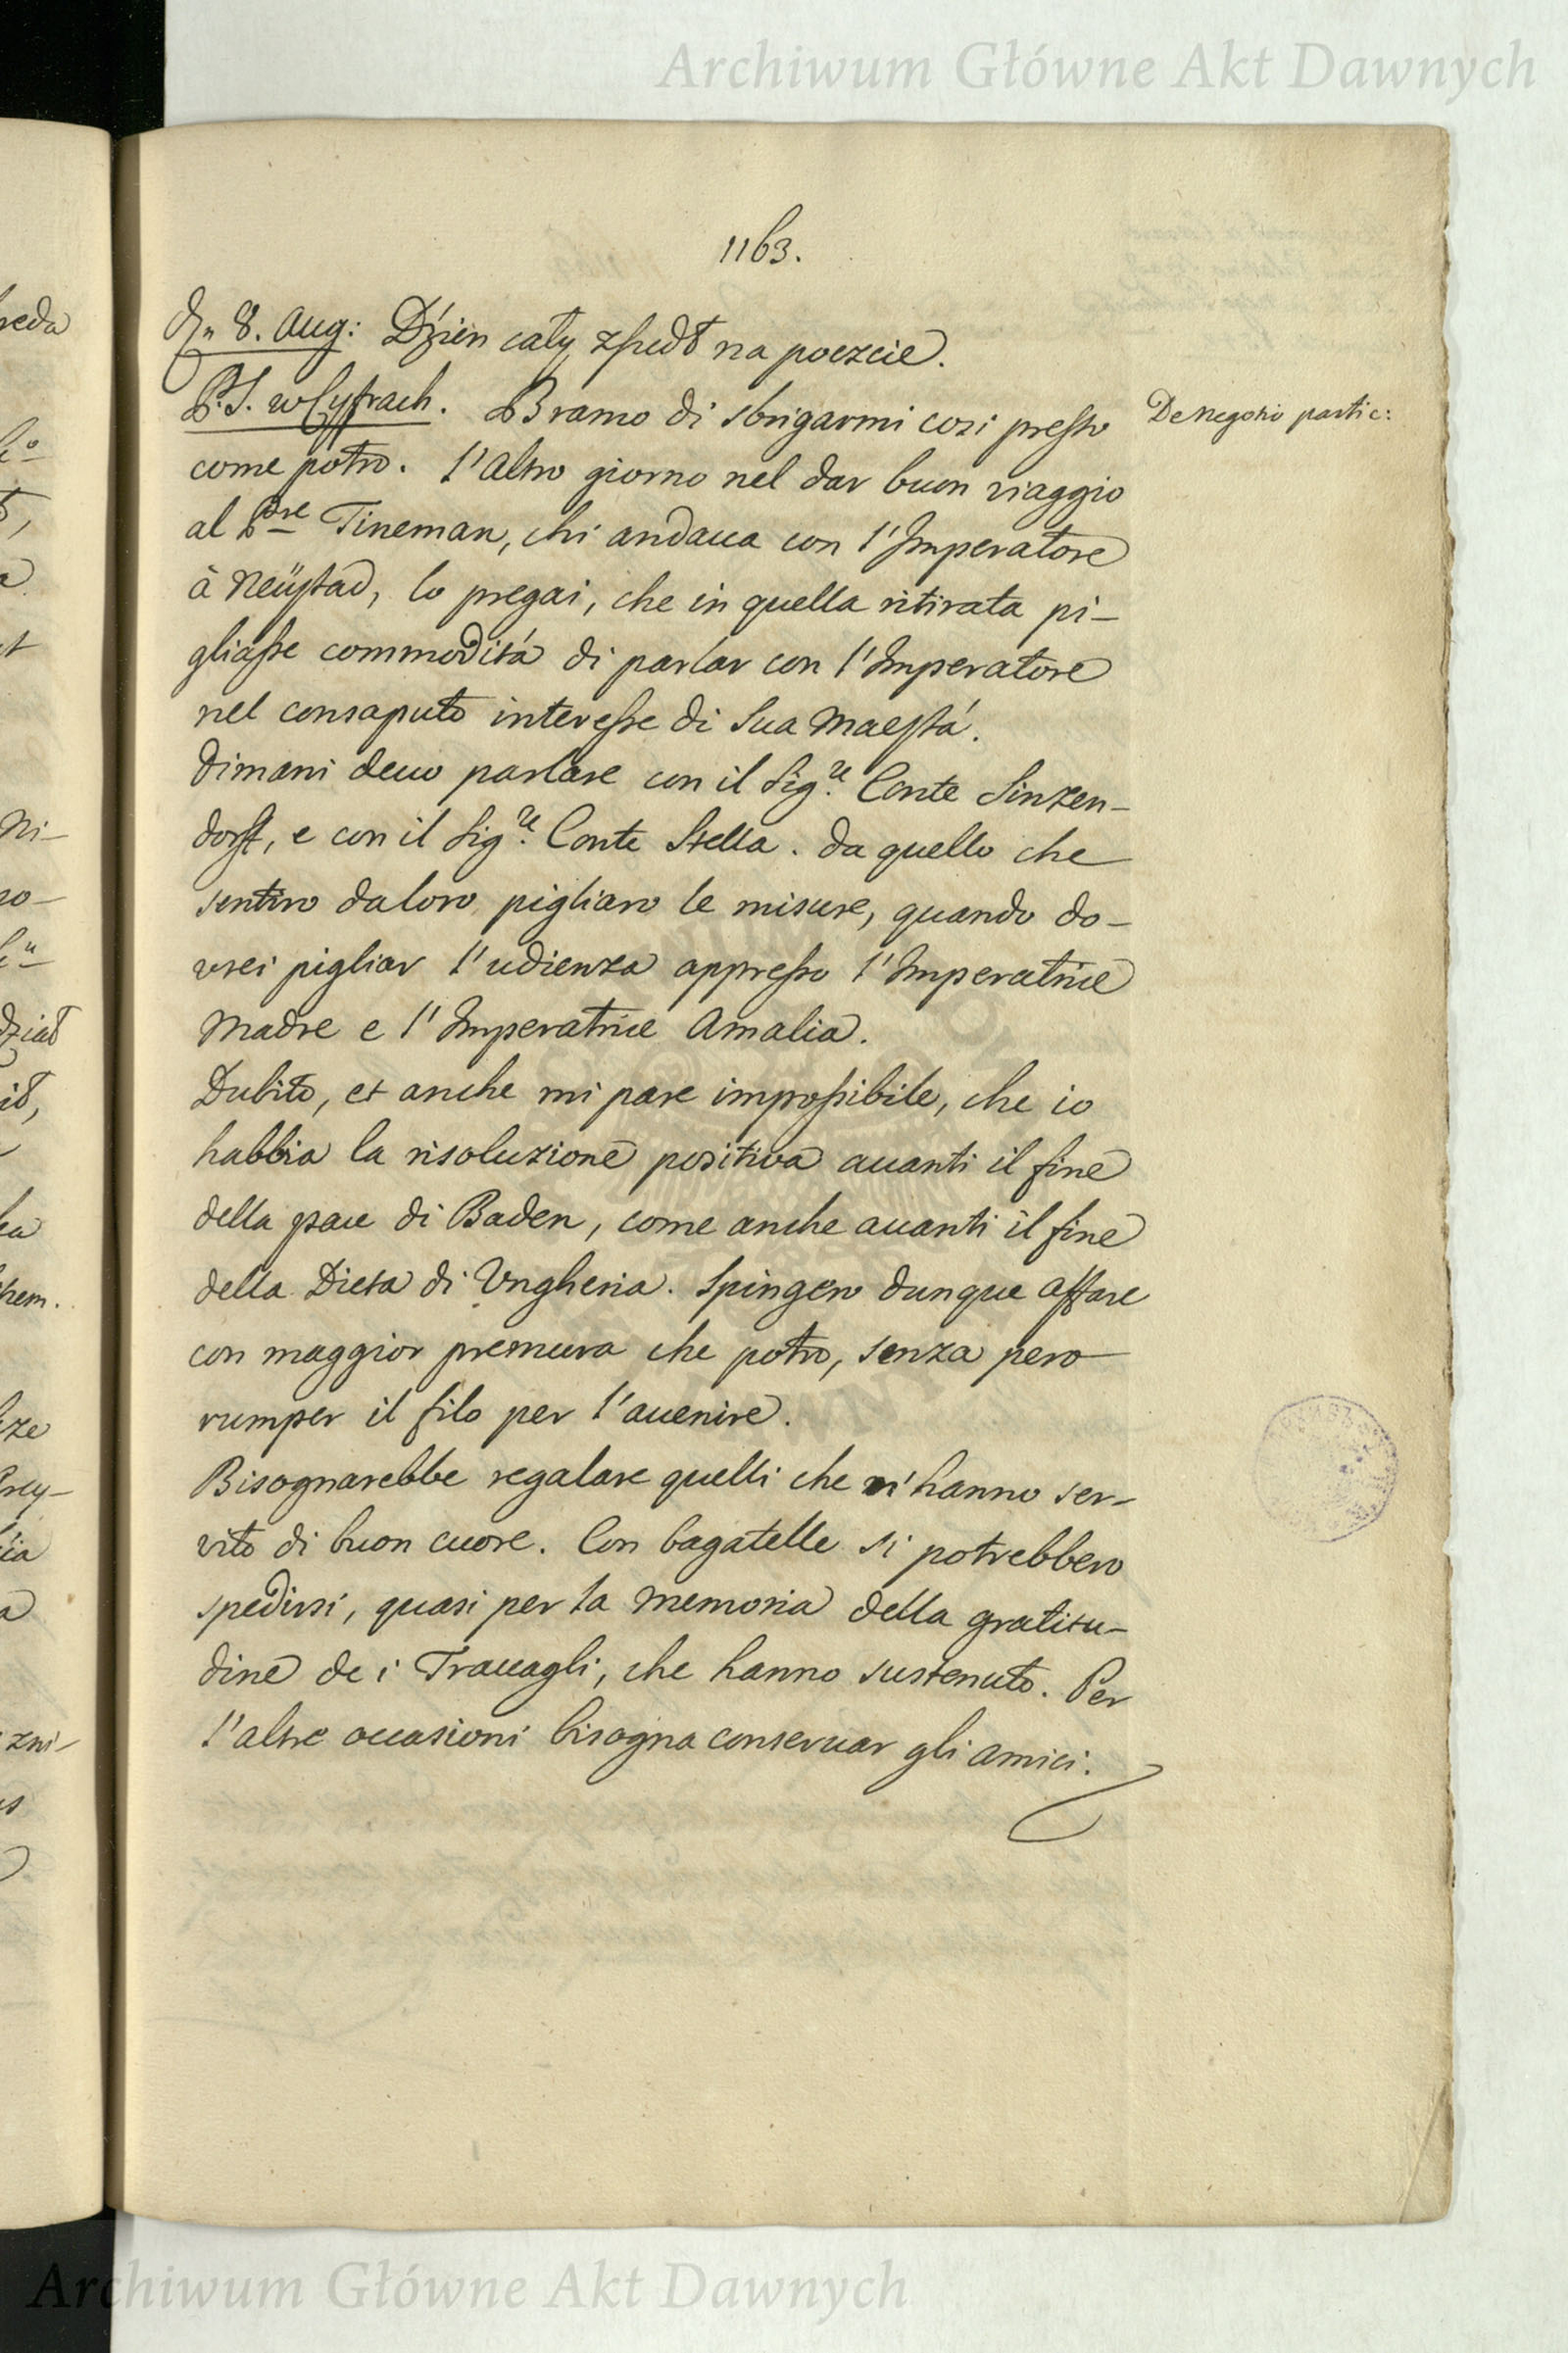 Archiwum Główne Akt Dawnych
1163.
Dn 8. Aug: Dźien cały zszedł na poczcie.
P.S. w Cyfrach. Bramo di sbrigarmi cosi presto
De negotio partic:
come potro. l'altro giorno nel dar buon viaggio
al Pre Tineman, chi andaua con l'Imperatore
à Neüstad, lo pregai, che in quella ritirata pi-
gliasse commodità di parlar con l'Imperatore
nel consaputo interesse di Sua Maestá.
Dimani deuo parlare con il Sig.re Conte Sinzen-
dorff, e con il Sig.re Conte Stella. da quello che
sentiro da loro pigliaro le misure, quando do-
vrei pigliar l'udienza appresso l'Imperatrice
Madre e l'Imperatrice Amalia.
Dubito, et anche mi pare impossibile, che io
habbia la risoluzione positiva auanti il fine
della pace di Baden, come anche auanti il fine
della Dieta di Ungheria. Spingero dunque affare
con maggior premura che potro, senza pero
rumper il filo per l'auenire.
Bisognarebbe regalare quelli che m'hanno ser-
vito di buon cuore. Con bagatelle si potrebbero
spedirsi, quasi per la memoria della gratitu-
dine de i Trauagli, che hanno sustenuto. Per
l'altre occasioni bisogna conseruar gli amici.
Archiwum Główne Akt Dawnych